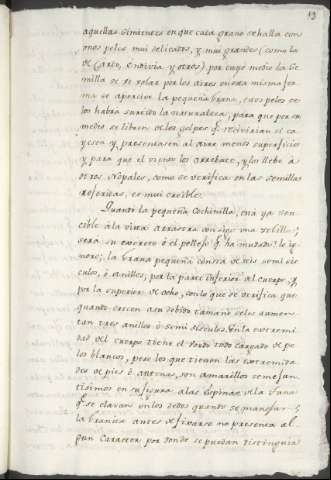 19
aquellas simientes en que cada grano se halla con
unos pelos mui delicados, y mui grandes (como la
de Cardo, endivia y otros) por cuyo medio la se
milla de se volar por los aires en esta misma for
ma se aparece la pequeña grana, cuyos pelos se
los habrá surtido la naturaleza, para que por su
medio se libren de los golpes qe. recivirian si ca
yesen y presentasen al ayre menos superficies
y para que el viento los arrebate, y los llebe á
otros Nopales, como se verifica en las semillas
referidas, es mui creible.
Quando la pequeña Cochinilla, esta ya sen
cible á la vista arrastra consigo una
será su excremento ó el pellejo qe. ha mudado? lo ig
noro; la grana pequeña consta de seis semi cir
culos, ó anillos, por la parte inferior al cuerpo; y
por la superior de ocho, con lo que se verifica que
quando crecen á su debido tamaño se les aumen
tan tres anillos ó semi circulos. En la extremi
dad del cuerpo tiene el dorso todo cargado de pe
los blancos, pero los que tienen las extremida
des de pies ó antenas, son amarillos semejan
tisimos en su figura á las espinas de la tuna
qe. se clavan en los dedos quando se manejan;
la grania antes de fixarse no presenta al
gun caracter por donde se puedan distinguir